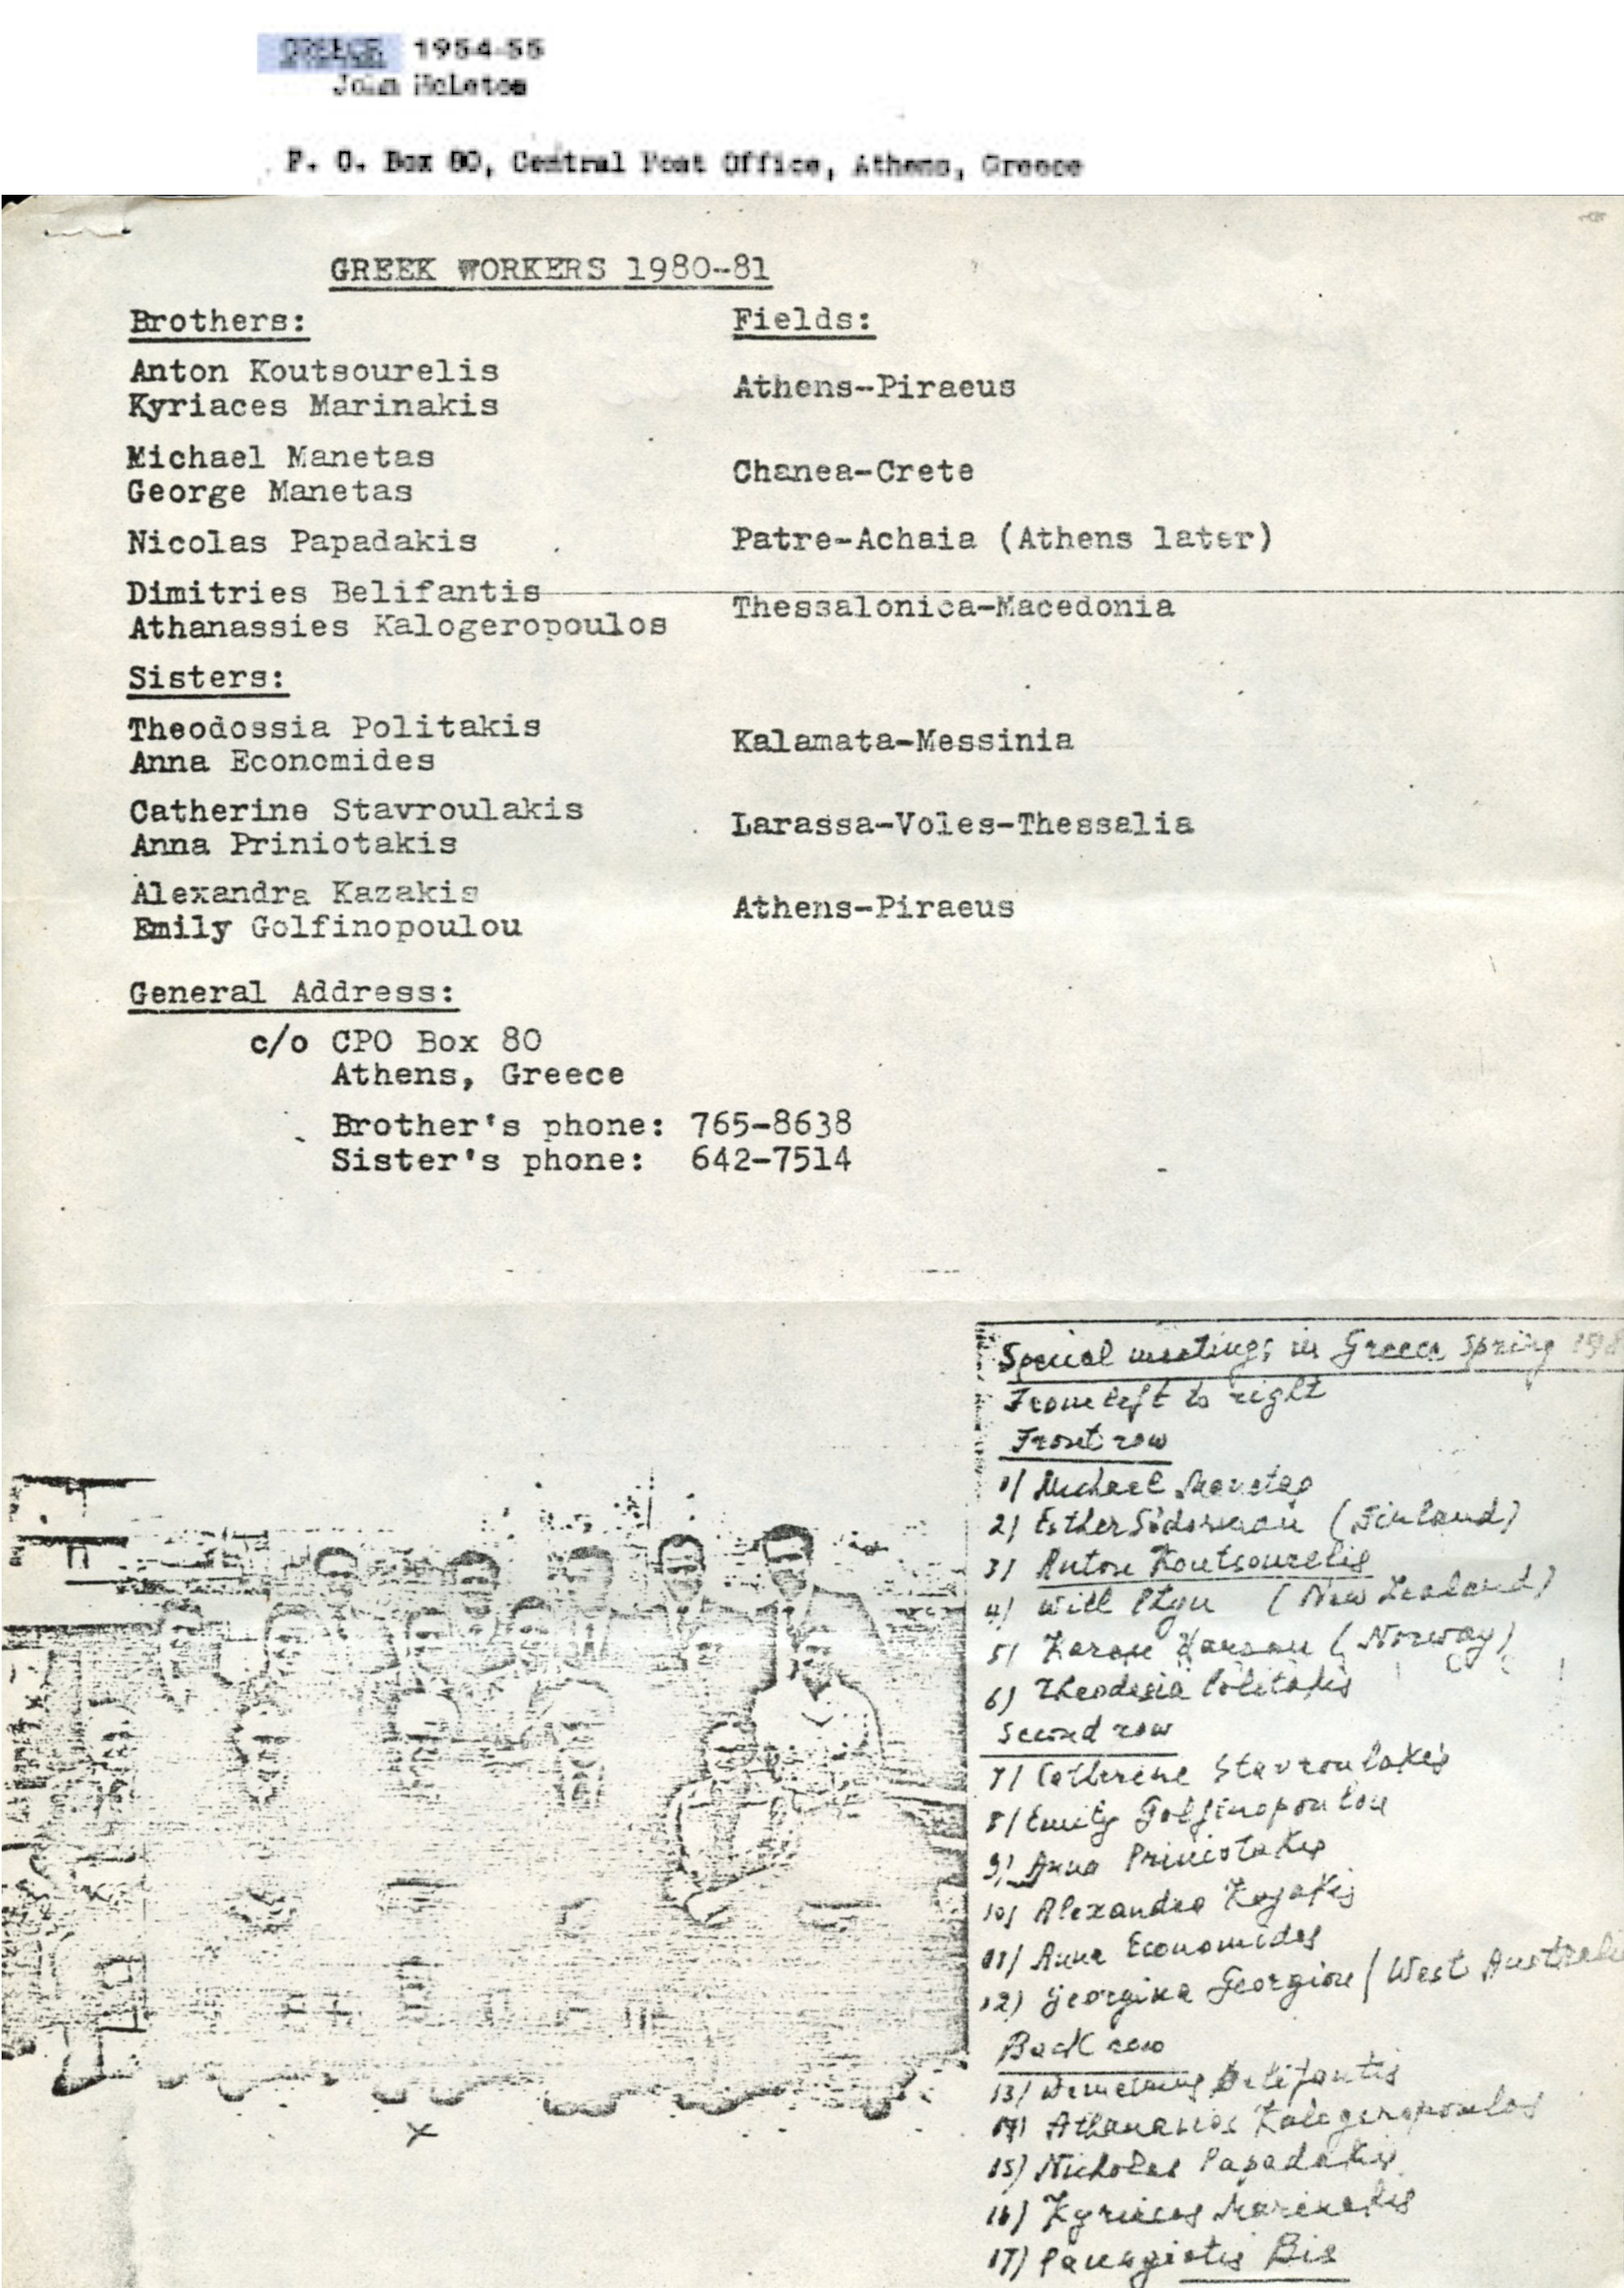 GREECE 1954-55
John McLetos
P. O. Box 80, Central Post Office, Athens, Greece
GREEK WORKERS 1980-81
Brothers:
Fields:
Anton Koutsourelis
Kyriaces Marinakis
Athens-Piraeus
Michael Manetas
George Manetas
Chanea-Crete
Nicolas Papadakis
Patre-Achaia (Athens later)
Dimitries Belifantis
Athanassies Kalogeropoulos
Thessalonica-Macedonia
Sisters:
Theodossia Politakis
Anna Economides
Kalamata-Messinia
Catherine Stavroulakis
Anna Priniotakis
Larassa-Voles-Thessalia
Alexandra Kazakis
Emily Golfinopoulou
Athens-Piraeus
General Address:
c/o CPO Box 80
Athens, Greece
Brother's phone: 765-8638
Sister's phone: 642-7514
Special meetings in Greece Spring
From left to right
Front row
1) Michael Manetas
2) Esther (Finland)
3) Anton Koutsourelis
4) Will (New Zealand)
5) (Norway)
6) Theodosia Politakis
Second row
7) Catherine Stavroulakis
8) Emily Golfinopoulou
9) Anna Priniotakis
10) Alexandra Kazakis
11) Anna Economides
12) Georgina Georgiou (West
Back row
13) Belifantis
14) Athanasios Kalogeropoulos
15) Nicholas Papadakis
16) Kyriacos Marinakis
17) Panagiotis Bis